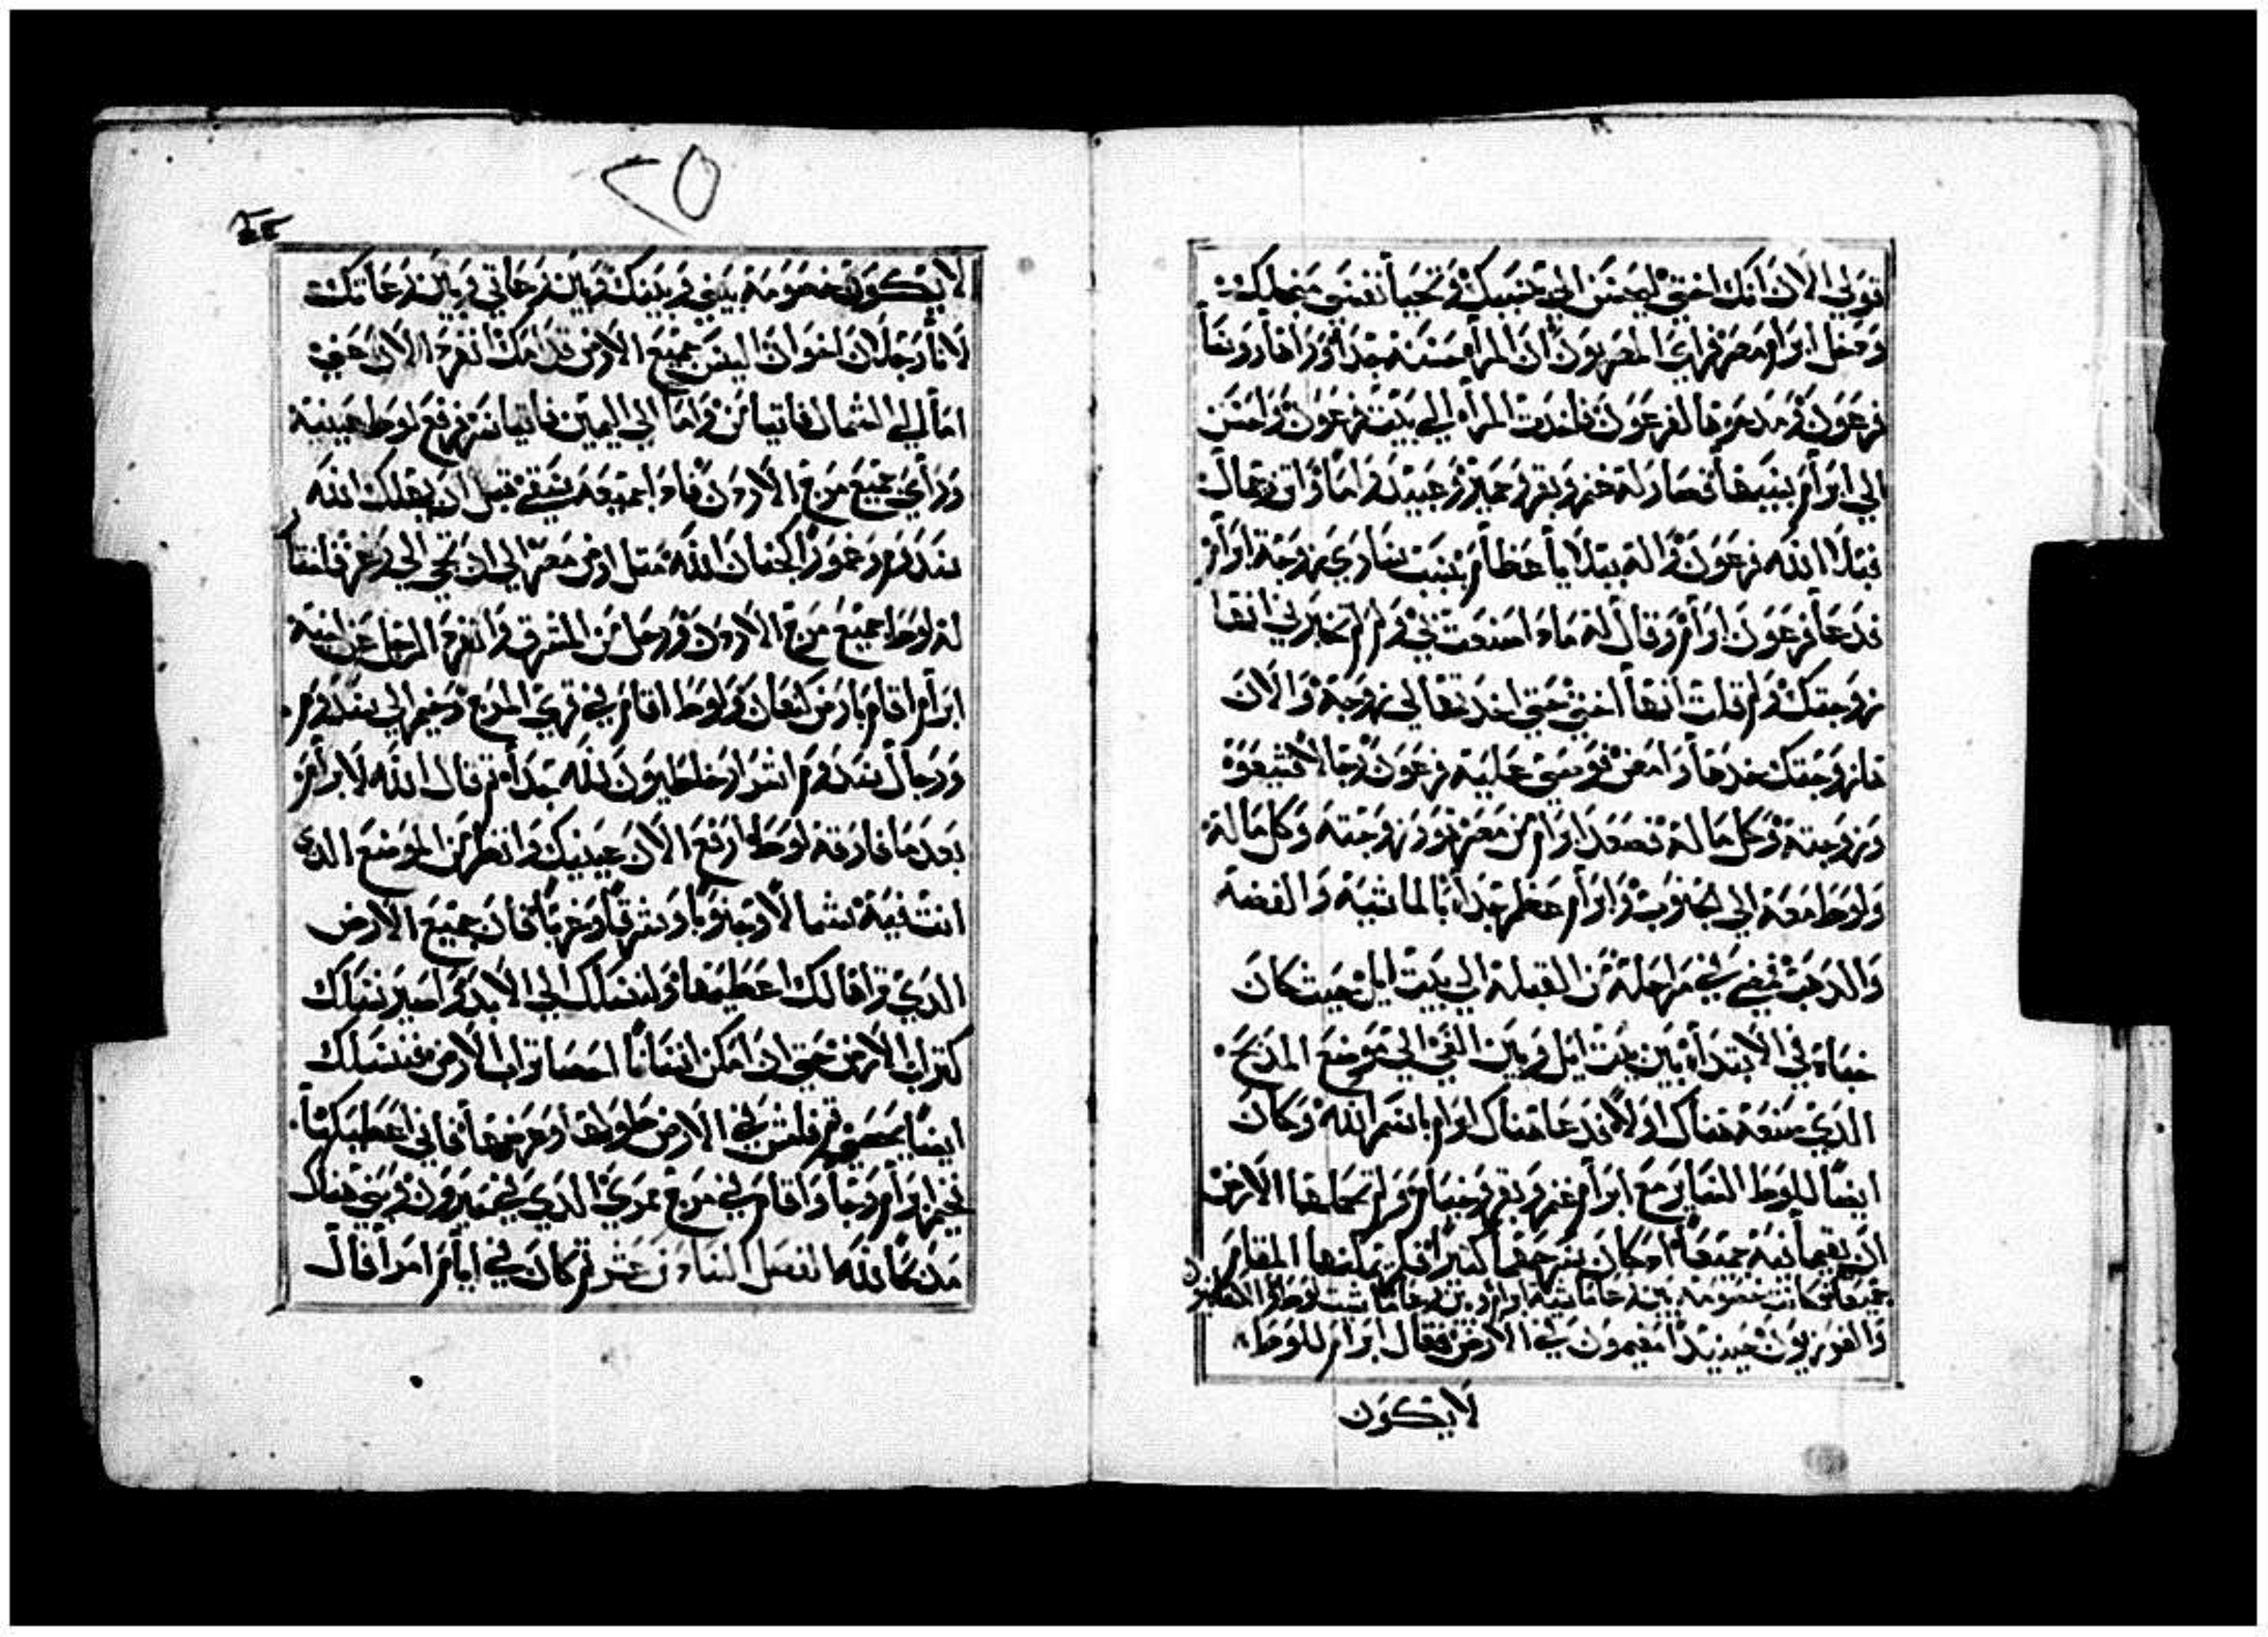 قولي الان انك اختي ليحسن الي بسببك وتحيا نفسي منجلك
ودخل ابرام مصر فراي المصريون ان المراه حسنة جدا وراها روسا
فرعون ومدحوها لفرعون فاخدت المراه الي بيت فرعون واحسن
الي ابرام بسببها فصار له غنم وبقر وحمير وعبيد واما واتن وجمال
فبلا الله فرعون واله ببلايا عظام بسبب ساري زوجة ابرام
فدعا فرعون ابرام وقال له مادا صنعت بي ولم لم تخبرني انها
زوجتك ولم قلت انها اختي حتي اخدتها لي زوجة والان
هاز وجتك خدها وامض فوصي عليه فرعون رجالا شيعوه
وزوجته وكل ما له فصعد ابرام من مصر هو وزوجته وكل ماله
ولوط معه الي الجنوب وابرام عظم جدا بالماشية والفضة
والدهب فمضي في مراحله من القبلة الي بيت ايل حيث كان
خباه في الابتداء بين بيت ايل وبين الغي الي موضع المدبح
الدي صنعه هناك اولا فدعا هناك ابرام باسم الله وكان
ايضا للوط الساير مع ابرام غنم وبقر وخيام ولم تحملهما الارض
ان يقيما فيه جميعا اد كان سرحهما كثيرا فلم يمكنهما المقام
جميعا وكانت خصومة بين رعاة ماشية ابرام وبين رعاة ماشية لوط والكنعانيون
والفرزيون حينيد مقيمون في الارض فقال ابرام للوط
لا يكون
٢٥
لا يكون خصومة بيني وبينك وبين رعاتي وبين رعاتك
لانا رجلان اخوان اليس جميع الارض قدامك انفرد الان عني
اما الي الشمال فاتيامن واما الي اليمين فاتياسر فرفع لوط عينيه
وراي جميع مرج الاردن فادا جميعه سقي قبل ان يهلك الله
سدوم وعمورا كجنان الله مثل ارض مصر الي ان تجي الي زغر فاختار
له لوط جميع مرج الاردن ورحل من المشرق وانفرد الرجل عن اخيه
ابرام اقام بارض كنعان ولوط اقام في قري المرج وخيم الي سدوم
ورجال سدوم اشرار خاطيون لله جدا ثم قال الله لابرام
بعد ما فارقه لوط ارفع الان عينيك وانظر من الموضع الدي
انت فيه شمالا وجنوبا وشرقا وغربا فان جميع الارض
الدي تراها لك اعطيها ولنسلك الي الابد واصير نسلك
كتراب الارض حتي ان امكن انسانا احصا تراب الارض فنسلك
ايضا يحصي قم فامش في الارض طولها وعرضها فاني اعطيكها
فخيم ابرام وجا واقام في مرج ممري الدي في حبرون وبني هناك
مدبحا لله الفصل السادس عشر ثم كان في ايام امرافال